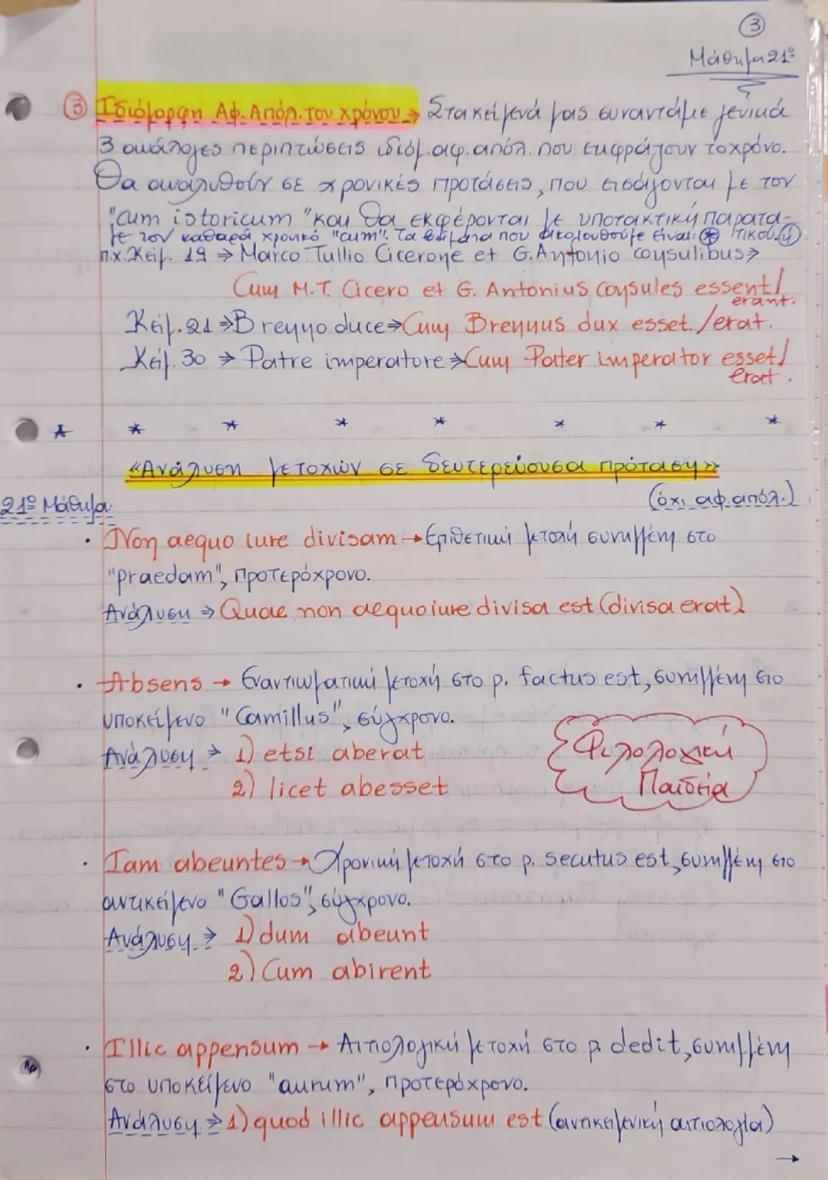 ③
Μάθημα 21ο
③ Ιδιόμορφη Αφ. Απόλ. του χρόνου → Στα κείμενά μας συναντάμε γενικά
3 ανάλογες περιπτώσεις ιδιόμ. αφ. απόλ. που εκφράζουν το χρόνο.
Θα αναλυθούν σε χρονικές προτάσεις, που εισάγονται με τον
"cum istoricum" και θα εκφέρονται με υποτακτική παρατα-
τικού ④
με τον καθαρά χρονικό "cum". Τα βήματα που ακολουθούμε είναι: ⊛
π.χ. Κείμ. 19 → Marco Tullio Cicerone et G. Antonio consulibus →
Cum M.T. Cicero et G. Antonius consules essent/
erant.
Κείμ. 21 → Brenno duce → Cum Brennus dux esset/erat.
Κείμ. 30 → Patre imperatore → Cum Pater imperator esset/
erat.
«Ανάλυση μετοχών σε δευτερεύουσα πρόταση»
(όχι αφ. απόλ.)
21ο Μάθημα:
· Non aequo iure divisam → Επιθετική μετοχή συνημμένη στο
"praedam", προτερόχρονο.
Ανάλυση → Quae non aequo iure divisa est (divisa erat)
· Absens → Εναντιωματική μετοχή στο ρ. factus est, συνημμένη στο
υποκείμενο "Camillus", σύγχρονο.
Ανάλυση → 1) etsi aberat
2) licet abesset
Φιλολογική
Παιδεία
· Iam abeuntes → Χρονική μετοχή στο ρ. secutus est, συνημμένη στο
αντικείμενο "Gallos", σύγχρονο.
Ανάλυση → 1) dum abeunt
2) Cum abirent
· Illic appensum → Αιτιολογική μετοχή στο ρ. dedit, συνημμένη
στο υποκείμενο "aurum", προτερόχρονο.
Ανάλυση → 1) quod illic appensum est (αντικειμενική αιτιολογία)
→